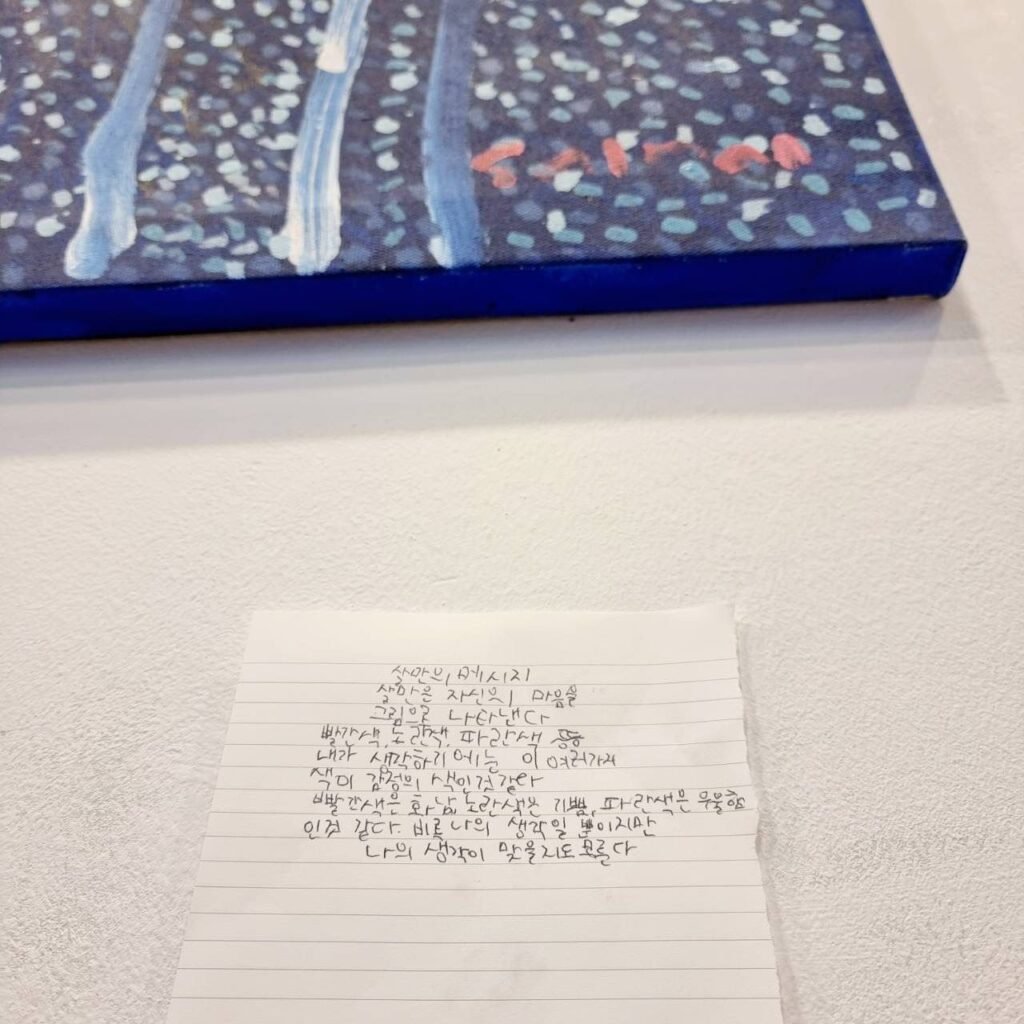 살만의 메시지
살만은 자신의 마음을
그림으로 나타낸다
빨간색, 노란색, 파란색 등등
내가 생각하기에는 이 여러가지
색이 감정의 색인것 같다
빨간색은 화남, 노란색은 기쁨, 파란색은 우울함
인것 같다. 비록 나의 생각일 뿐이지만
나의 생각이 맞을지도 모른다